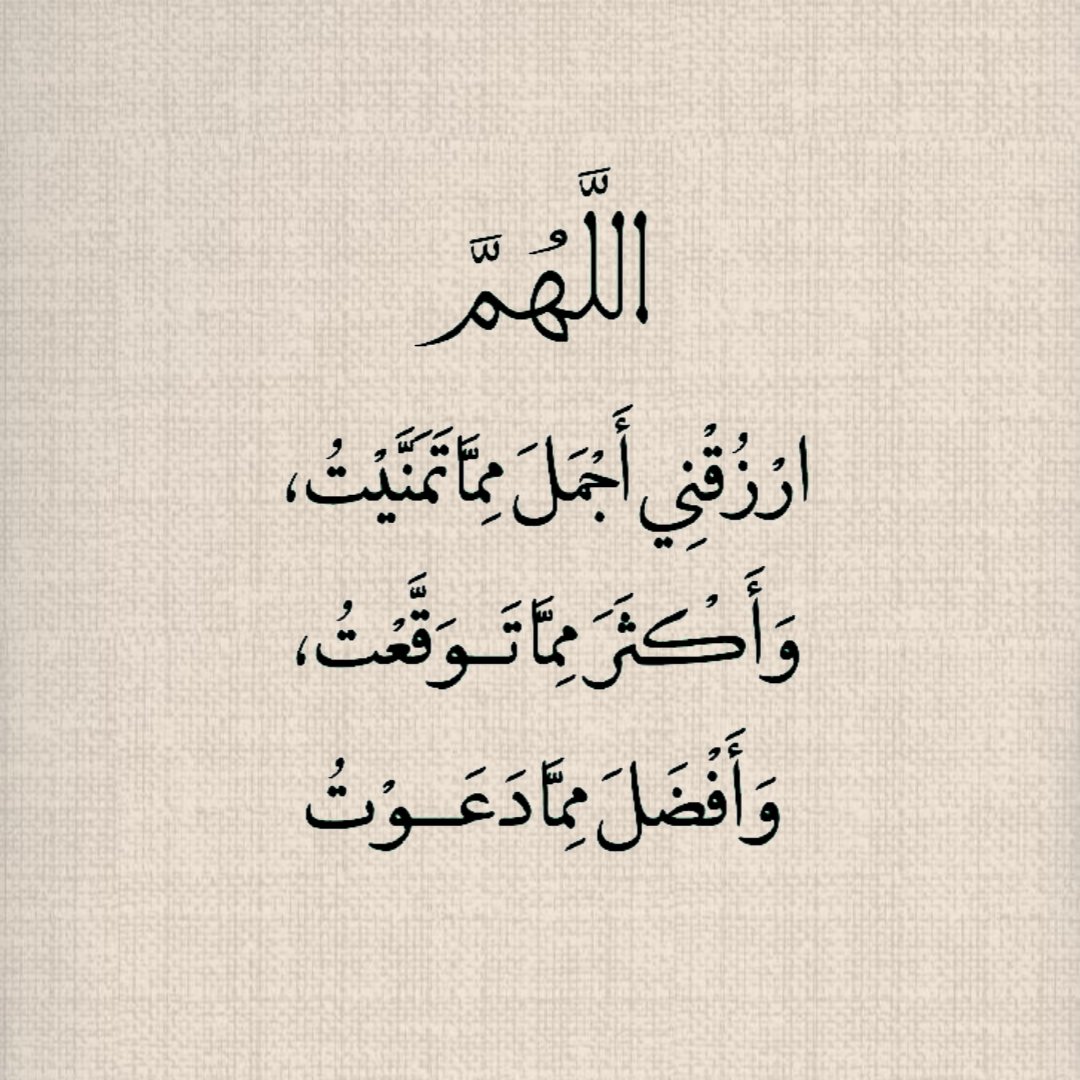 اللَّهُمَّ
ارْزُقْنِي أَجْمَلَ مِمَّا تَمَنَّيْتُ،
وَأَكْثَرَ مِمَّا تَـوَقَّعْتُ،
وَأَفْضَلَ مِمَّا دَعَـوْتُ